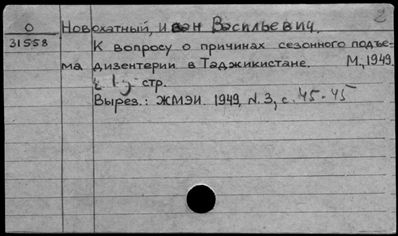 2
О Новохатный, Иван Васильевич.
31558 К вопросу о причинах сезонного подъе-
ма дизентерии в Таджикистане. М., 1949.
стр.
Вырез.: ЖМЭИ. 1949, N. 3, с. 45-45